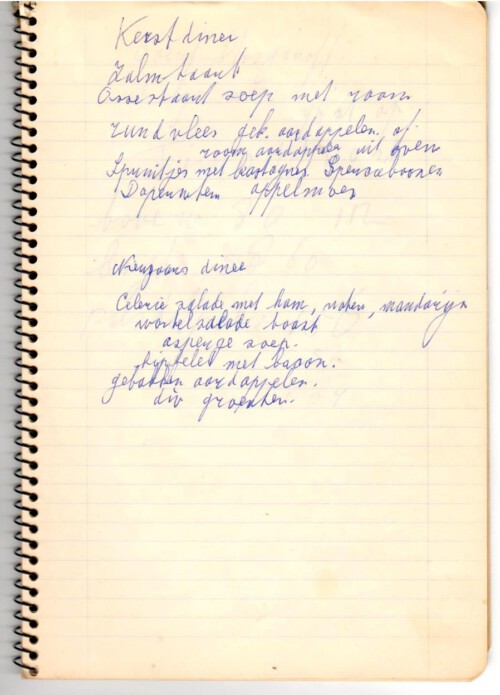 Kerst diner
Zalm taart
Ossestaart soep met room
rundvlees gek. aardappelen of
room aardappelen uit oven
Spruitjes met kastagnes Spersiebonen
Doperwten appelmoes
Nieuwjaars diner
Celerie salade met ham, noten, mandarijn
wortelsalade toast
asperge soep.
kipfilet met bacon.
gebakken aardappelen.
div groenten.